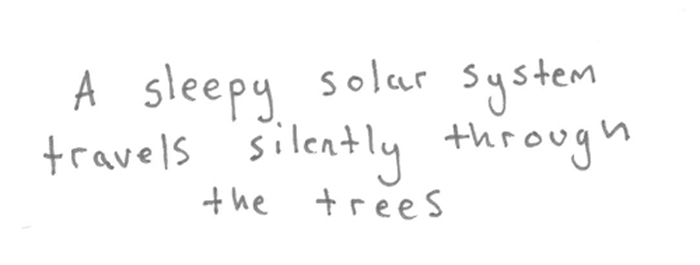 A sleepy solar system
travels silently through
the trees